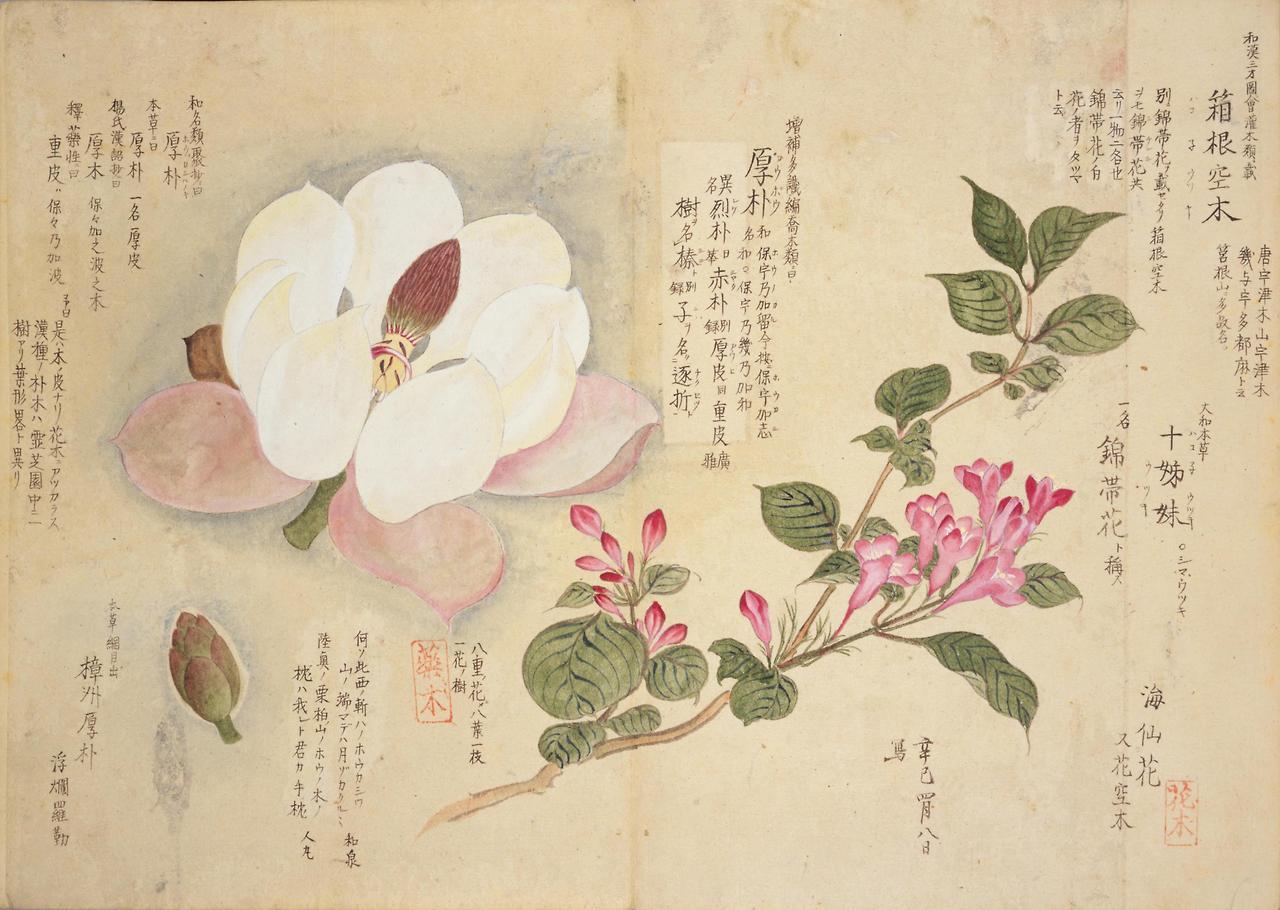 和漢三才圖會灌木類載
箱根空木
ハコ子ウツキ
唐空津木山宇津木
幾与宇多都麻ト云
筥根山ニ多故名
別ニ錦帯花ヲ載セタリ箱根空木
ヲモ錦帯花共
云リ一物二名也
錦帯花ノ白
花ノ者ヲタツマ
ト云
大和本草
十姊妹
ハコ子ウツキ
ウツキ
○シマウツキ
一名
錦帯花ト稱ス
海仙花
又花空木
花木
辛巳四月八日
寫
増補多識編喬木類ニ曰
厚朴
コウボウ
和名
保宇乃加留今按保宇加志
和名保宇乃幾乃加和
異名
烈朴
赤朴別録
厚皮同
重皮廣雅
樹ヲ名榛ト別録
子ヲ名逐折
八重ノ花ハ八葉一枝
一花ノ樹
藥木
何ソ此西ノ斬ハノホウカシワ
山ノ端マデハ月ツカクルヽ
和泉
陸奥ノ栗柏山ノホウノ木ノ
枕ハ我レト君カ手枕
人丸
和名類聚抄ニ曰
厚朴
本草ニ曰
厚朴 一名厚皮
楊氏漢語抄ニ曰
厚木 保々加之波之木
釋藥性ニ曰
重皮 保々乃加波
予曰
是ハ木ノ皮ナリ花木ニアツカラス
漢種ノ朴木ハ霊芝園中ニ
樹アリ葉形畧ト異リ
本草綱目出
樟州厚朴
浮爛羅勒